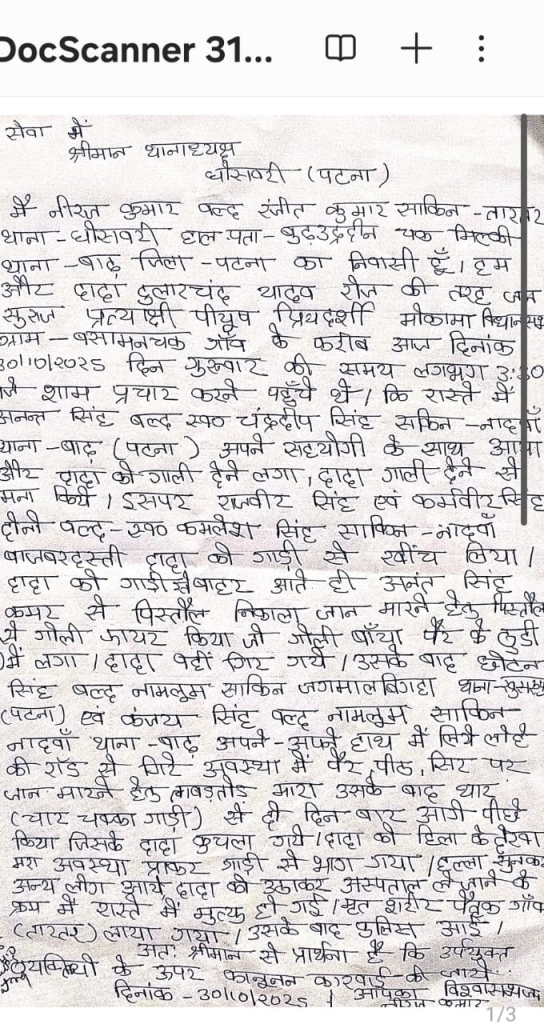 DocScanner 31...
सेवा में
श्रीमान थानाध्यक्ष
घोसवरी (पटना)
मैं नीरज कुमार वल्द रंजीत कुमार साकिन - तारतर
थाना - घोसवरी हाल पता - चक मिल्की
थाना - बाढ़ जिला - पटना का निवासी हूँ। हम
और दादा दुलारचंद यादव रोज की तरह जन
सुराज प्रत्याक्षी पीयूष प्रियदर्शी मोकामा
ग्राम - बसामनचक गाँव के करीब आज दिनांक
30/10/2025 दिन गुरूवार की समय लगभग 3:30
शाम प्रचार करने पहुँचे थे। कि रास्ते में
अनन्त सिंह वल्द स्व० चंद्रदीप सिंह सकिन - नादवाँ
थाना - बाढ़ (पटना) अपने सहयोगी के साथ आया
और दादा को गाली देने लगा, दादा गाली देने से
मना किये। इसपर राजवीर सिंह एवं कर्मवीर सिंह
दोनो वल्द - स्व० कमलेश सिंह साकिन - नादवाँ
बाजबरदस्ती दादा को गाड़ी से खींच लिया।
दादा को गाड़ी से बाहर आते ही अनंत सिंह
कमर से पिस्तौल निकाला जान मारने हेतु पिस्तौल
से गोली फायर किया जो गोली बाँया पैर के
में लगा। दादा वहीं गिर गये। उसके बाद छोटन
सिंह वल्द नामलूम साकिन जगमालबिगहा थाना -
(पटना) एवं कंजय सिंह वल्द नामलूम साकिन
नादवाँ थाना - बाढ़ अपने - अपने हाथ में लिये लोहे
की रॉड से गिरे अवस्था में पैर, पीठ, सिर पर
जान मारने हेतु मारा उसके बाद थार
(चार चक्का गाड़ी) से दो तिन बार आगे पीछे
किया जिसके दादा कुचला गये। दादा को हिला के देखा
मरा अवस्था पाकर गाड़ी से भाग गया। हल्ला सुनकर
अन्य लोग आये दादा को उठाकर अस्पताल ले जाने के
क्रम में रास्ते में मृत्यु हो गई। मृत शरीर पैतृक गाँव
(तारतर) लाया गया। उसके बाद पुलिस आई।
अतः श्रीमान से प्रार्थना है कि उर्पयुक्त
व्यक्तियों के ऊपर कानूनन कारवाई की जाये
दिनांक - 30/10/2025 । आपका विश्वासभाजन
नीरज कुमार
1/3